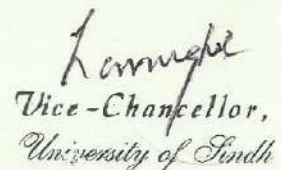 Vice-Chancellor,
University of Sindh